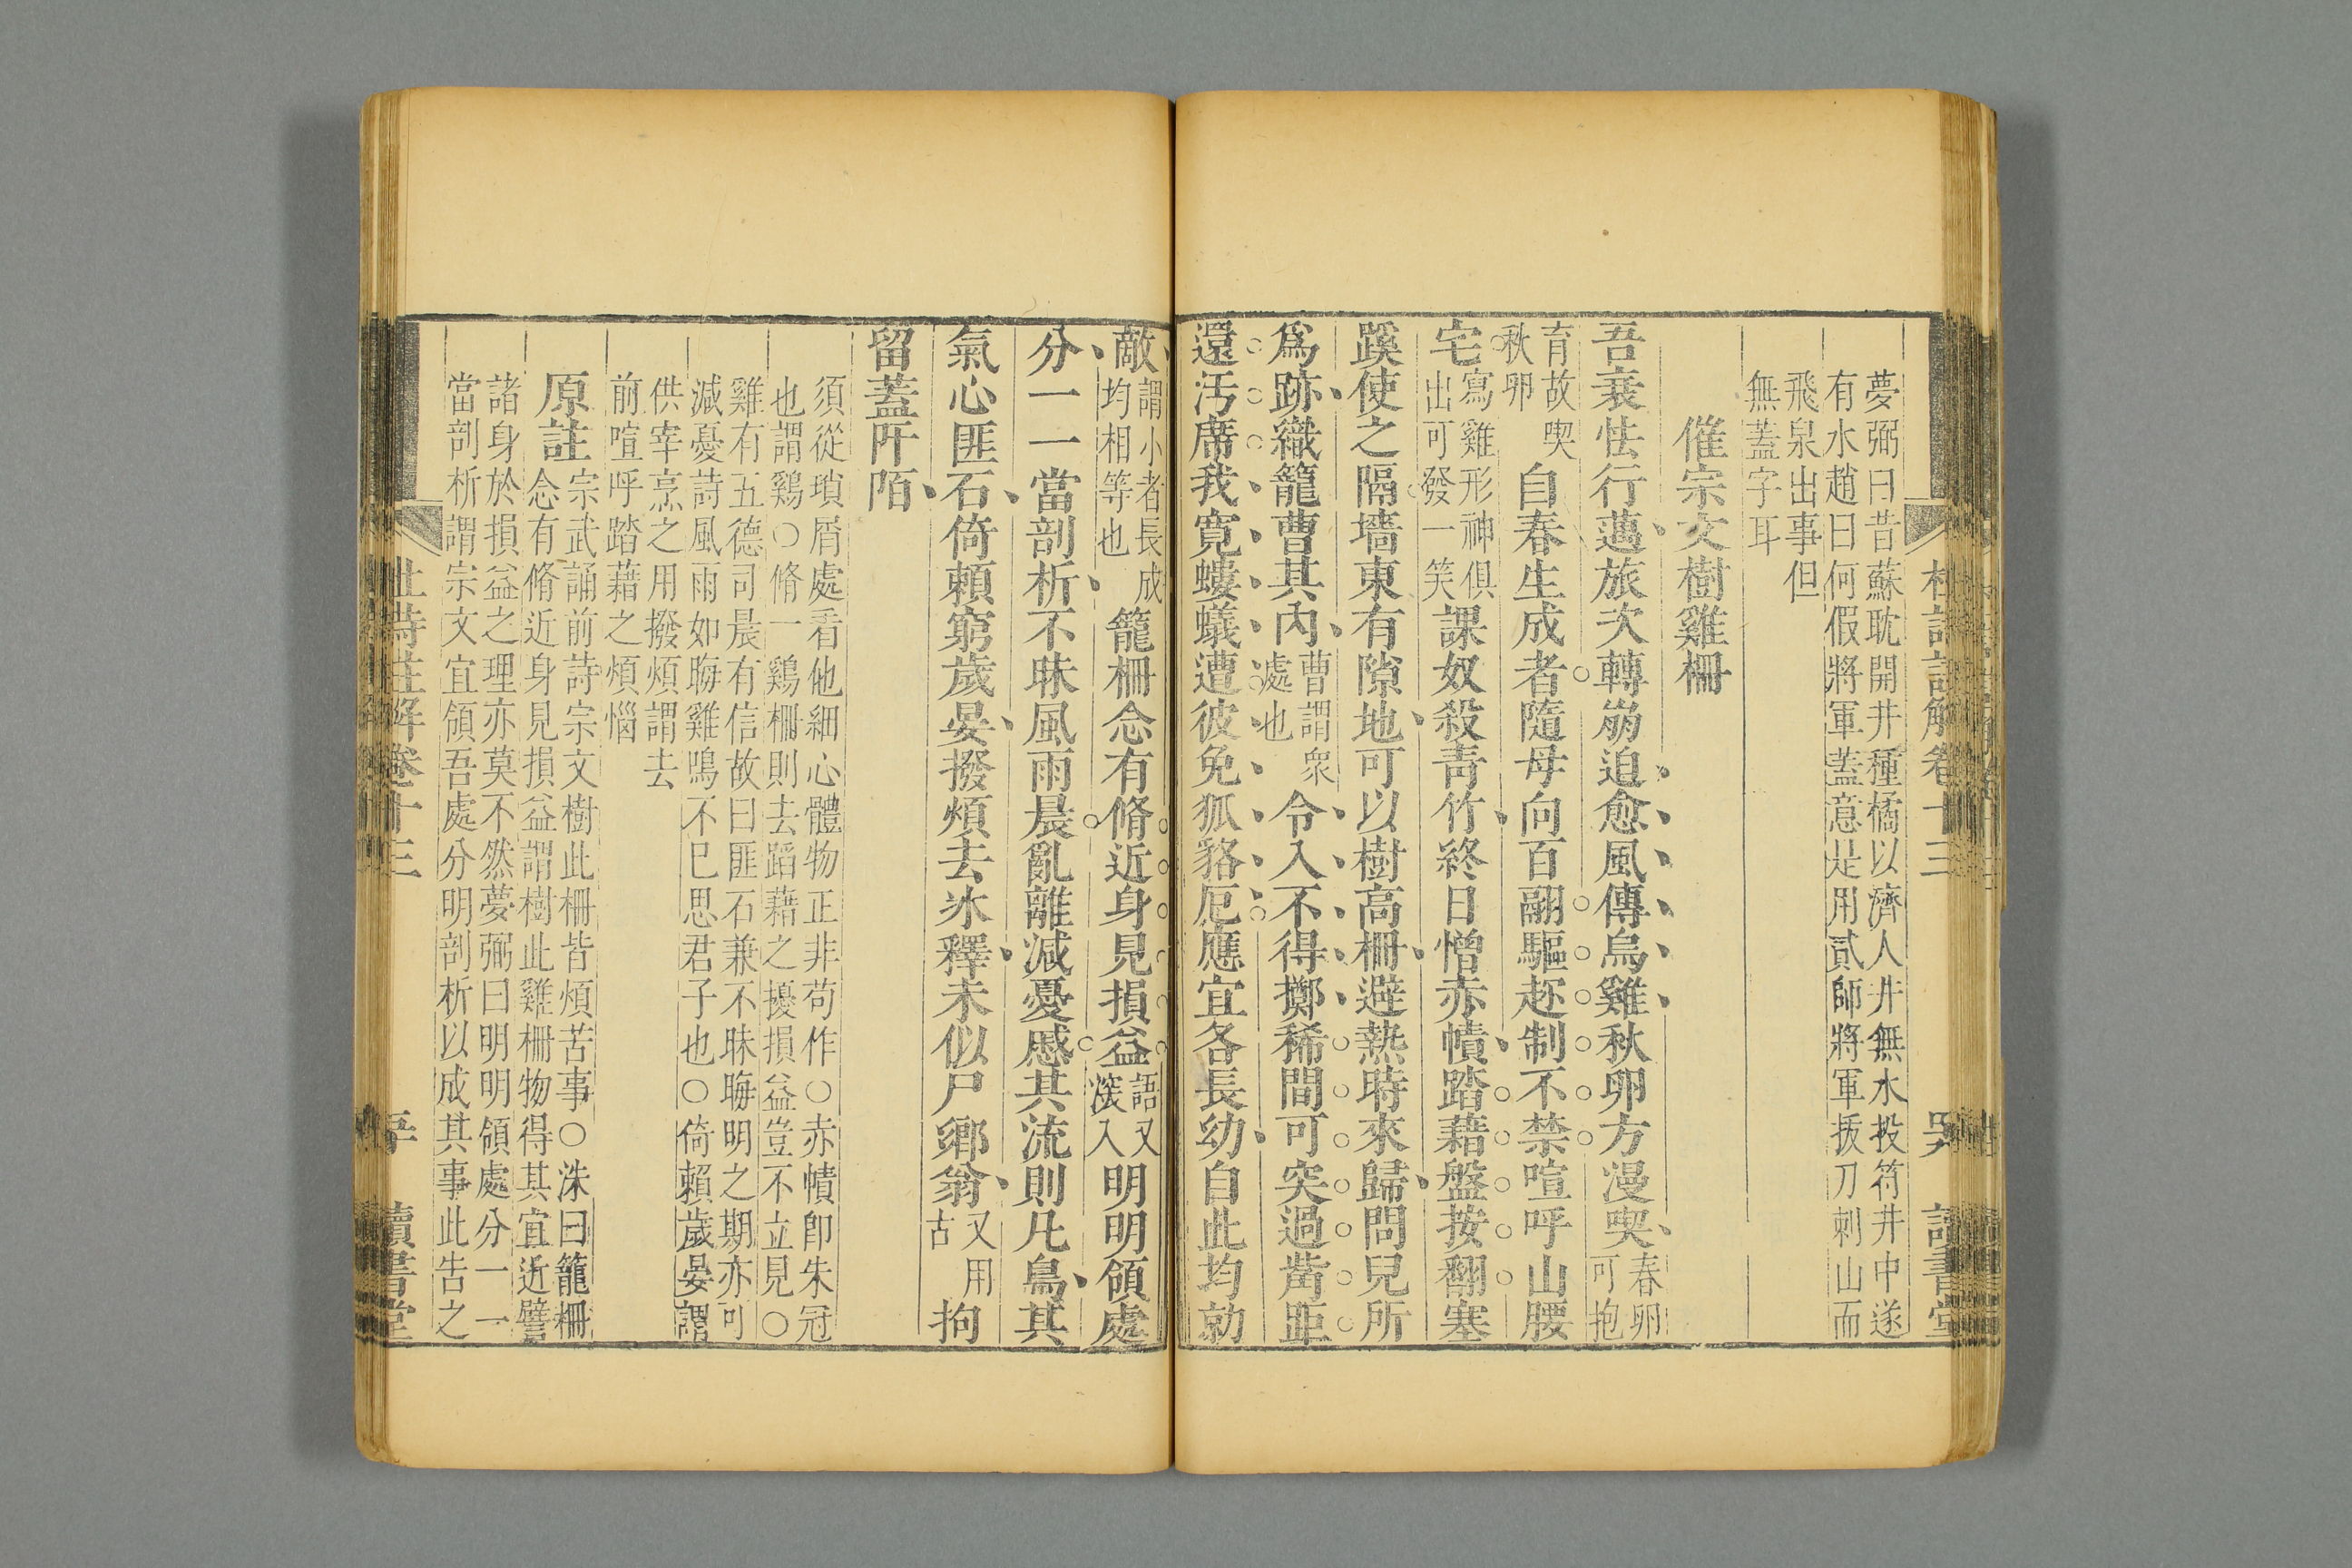 夢弼曰昔蘇耽開井種橘以濟人井無水投符井中遂
有水趙曰何假將軍葢意是用貳師將軍拔刀刺山而
飛泉出事但
無蓋字耳
催宗文樹雞柵
吾衰怯行邁旅次轉崩迫愈風傳烏雞秋卵方漫喫春卵可抱
育故喫秋卵自春生成者隨母向百翮驅趂制不禁喧呼山腰
宅寫雞形神俱出可發一笑課奴殺青竹終日憎赤幘踏藉盤按翻塞
蹊使之隔墻東有隙地可以樹高柵避熱時來歸問兒所
爲跡織籠曹其內曹謂衆處也令入不得擲稀間可突過觜距
還汚席我寬螻蟻遭彼免狐貉厄應宜各長幼自此均勍
敵謂小者長成均相等也籠柵念有脩近身見損益語又深入明明領處
分一一當剖析不昧風雨晨亂離減憂慼其流則凡鳥其
氣心匪石倚賴窮歲晏撥煩去氷釋未似尸鄉翁又用古拘
留蓋阡陌
須從瑣屑處看他細心體物正非苟作○赤幘卽朱冠
也謂鷄○脩一鷄柵則去蹈藉之擾損益豈不立見○
雞有五德司晨有信故曰匪石兼不昧晦明之期亦可
減憂詩風雨如晦雞鳴不已思君子也○倚賴歲晏謂
供宰烹之用撥煩謂去
前喧呼踏藉之煩惱
原註宗武誦前詩宗文樹此柵皆煩苦事○洙曰籠柵
念有脩近身見損益謂樹此雞柵物得其宜近譬
諸身於損益之理亦莫不然夢弼曰明明領處分一一
當剖析謂宗文宜領吾處分明剖析以成其事此告之
杜詩註解卷十三
讀書堂